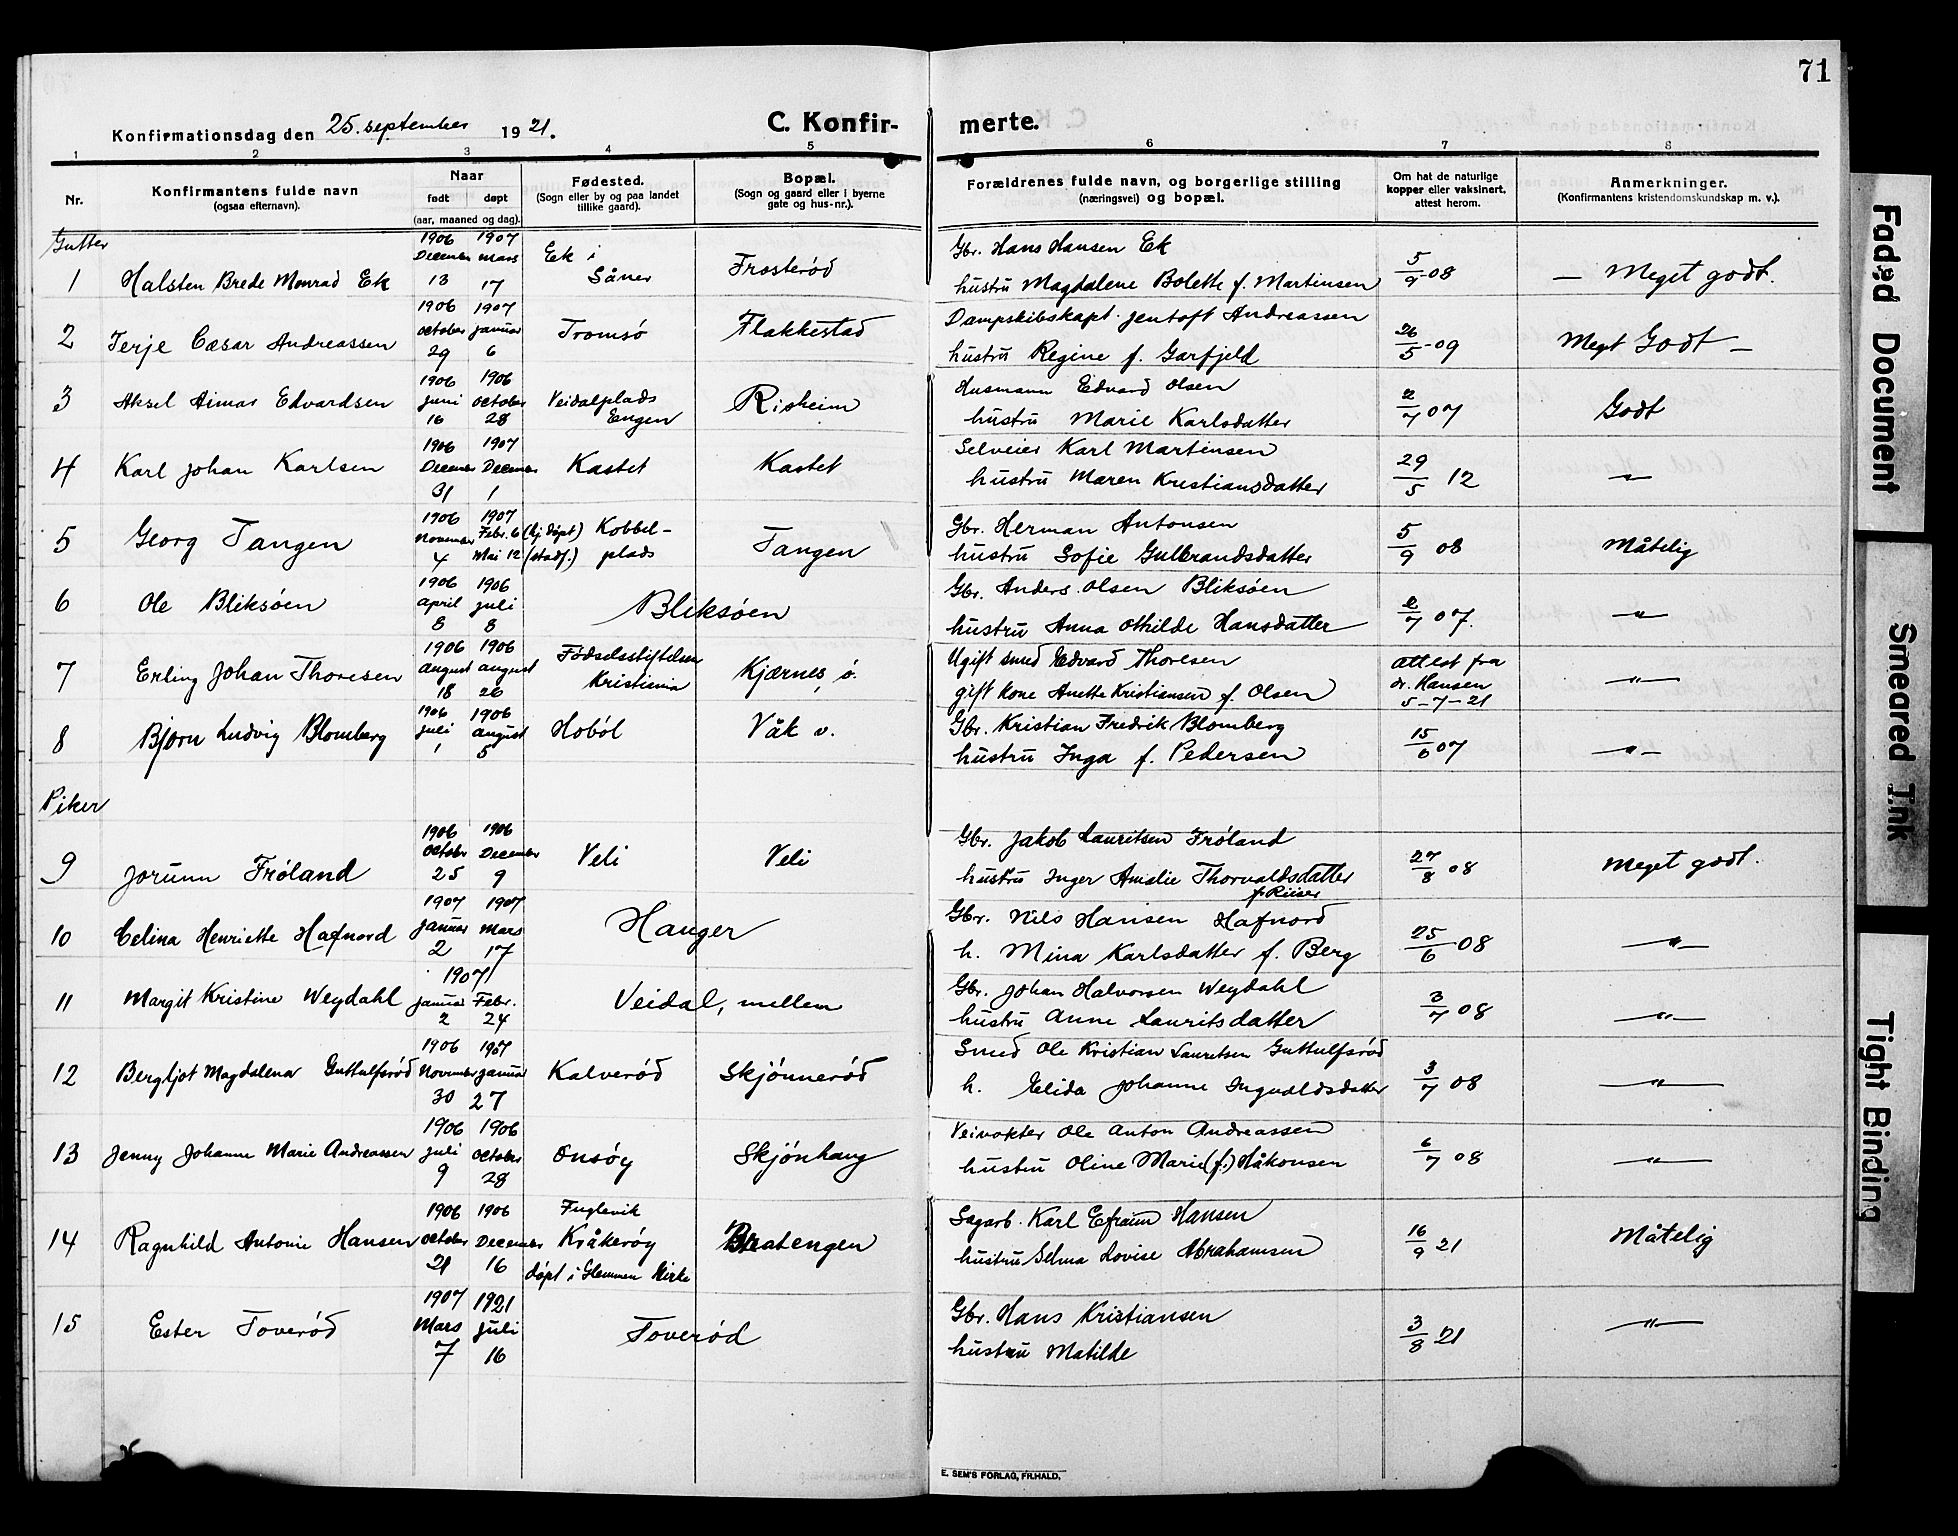 71
Konfirmationsdag den 25. september 1921.
C. Konfir-
merte.
1 2 3 4 5 6 7 8
Nr.
Konfirmantens fulde navn
(ogsaa efternavn).
Naar
født døpt
(aar, maaned og dag).
Fødested.
(Sogn eller by og paa landet
tillike gaard).
Bopæl.
(Sogn og gaard eller i byerne
gate og hus-nr.).
Forældrenes fulde navn, og borgerlige stilling
(næringsvei) og bopæl.
Om hat de naturlige
kopper eller vaksinert,
attest herom.
Anmerkninger.
(Konfirmantens kristendomskundskap m. v.).
Gutter
1906 1907 Ek i Gbr. Hans Hansen Ek
December mars
1 Halsten Brede Monrad Ek 13 17 Såner Frosterød hustru Magdalene Bolette f. Martinsen 5/9-08 — Meget godt.
1906 1907 Dampskibskapt. Jentoft Andreassen
2 Terje Cæsar Andreassen october januar Tromsø Flakkestad 26/5-09 Meget Godt —
29 6 hustru Regine f. Garfjeld
1906 1906 Husmann Edvard Olsen
3 Aksel Aimar Edvardsen juni october Veidalplads Risheim 2/7 07 Godt
16 28 Engen hustru Marie Karlsdatter
1906 1907 Selveier Karl Martinsen
4 Karl Johan Karlsen Decemer Decemer Kastet Kastet 29/5 12 —"—
31 1 hustru Maren Kristiansdatter
1906 1907 Gbr. Herman Antonsen
5 Georg Tangen November Febr. 6 (hj.døpt) Kobbel- Tangen 5/9 08 Måtelig
4 Mai 12 (stadf.) plads hustru Sofie Gulbrandsdatter
1906 1906 Gbr. Anders Olsen Bliksøen
6 Ole Bliksøen april juli Bliksøen 2/7 07. —"—
8 8 hustru Anna Othilde Hansdatter
1906 1906 Fødselsstiftelsen Ugift smed Edvard Thoresen attest fra
7 Erling Johan Thoresen august august Kristiania Kjærnes, ø. dr. Hansen —"—
18 26 gift kone Anette Kristiansen f. Olsen 5-7-21
1906 1906 Gbr. Kristian Fredrik Blomberg
8 Bjørn Ludvig Blomberg juli august Hobøl Våk v. 15/6 07 —"—
1 5 hustru Inga f. Pedersen
Piker
1906 1906 Gbr. Jakob Lauritsen Frøland
9 Jorunn Frøland October December Veli Veli 27/8 08 Meget godt.
25 9 hustru Inger Amalie Thorvaldsdatter
f. Riiser
1907 1907 Gbr. Nils Hansen Hafnord
10 Celina Henriette Hafnord januar mars Hanger 25/6 08 —"—
2 17 h. Mina Karlsdatter f. Berg
1907 Gbr. Johan Halvorsen Weydahl
11 Margit Kristine Weydahl januar Febr. Veidal, mellem 3/7 08 —"—
2 24 hustru Anne Lauritsdatter
1906 1907 Smed Ole Kristian Lauritsen Guttulfsrød
12 Bergljot Magdalena Guttulfsrød November januar Kalverød Skjønnerød 3/7 08 —"—
30 27 h. Elida Johanne Ingvaldsdatter
1906 1906 Veivokter Ole Anton Andreassen
13 Jenny Johanne Marie Andreassen juli October Onsøy Skjønhaug 6/7 08 —"—
9 28 hustru Oline Marie (f.) Håkonsen
1906 1906 Fuglevik Sagarb. Karl Efraim Hansen
14 Ragnhild Antonie Hansen october December Kråkerøy Bratengen 16/9 21 Måtelig
21 16 døpt i Glemmen Kirke hustru Selma Lovise Abrahamsen
1907 1921 Gbr. Hans Kristiansen
15 Ester Toverød Mars juli Toverød 3/8 21 —"—
7 16 hustru Matilde
E. SEM'S FORLAG, FR.HALD.
Faded Document
Smeared Ink
Tight Binding